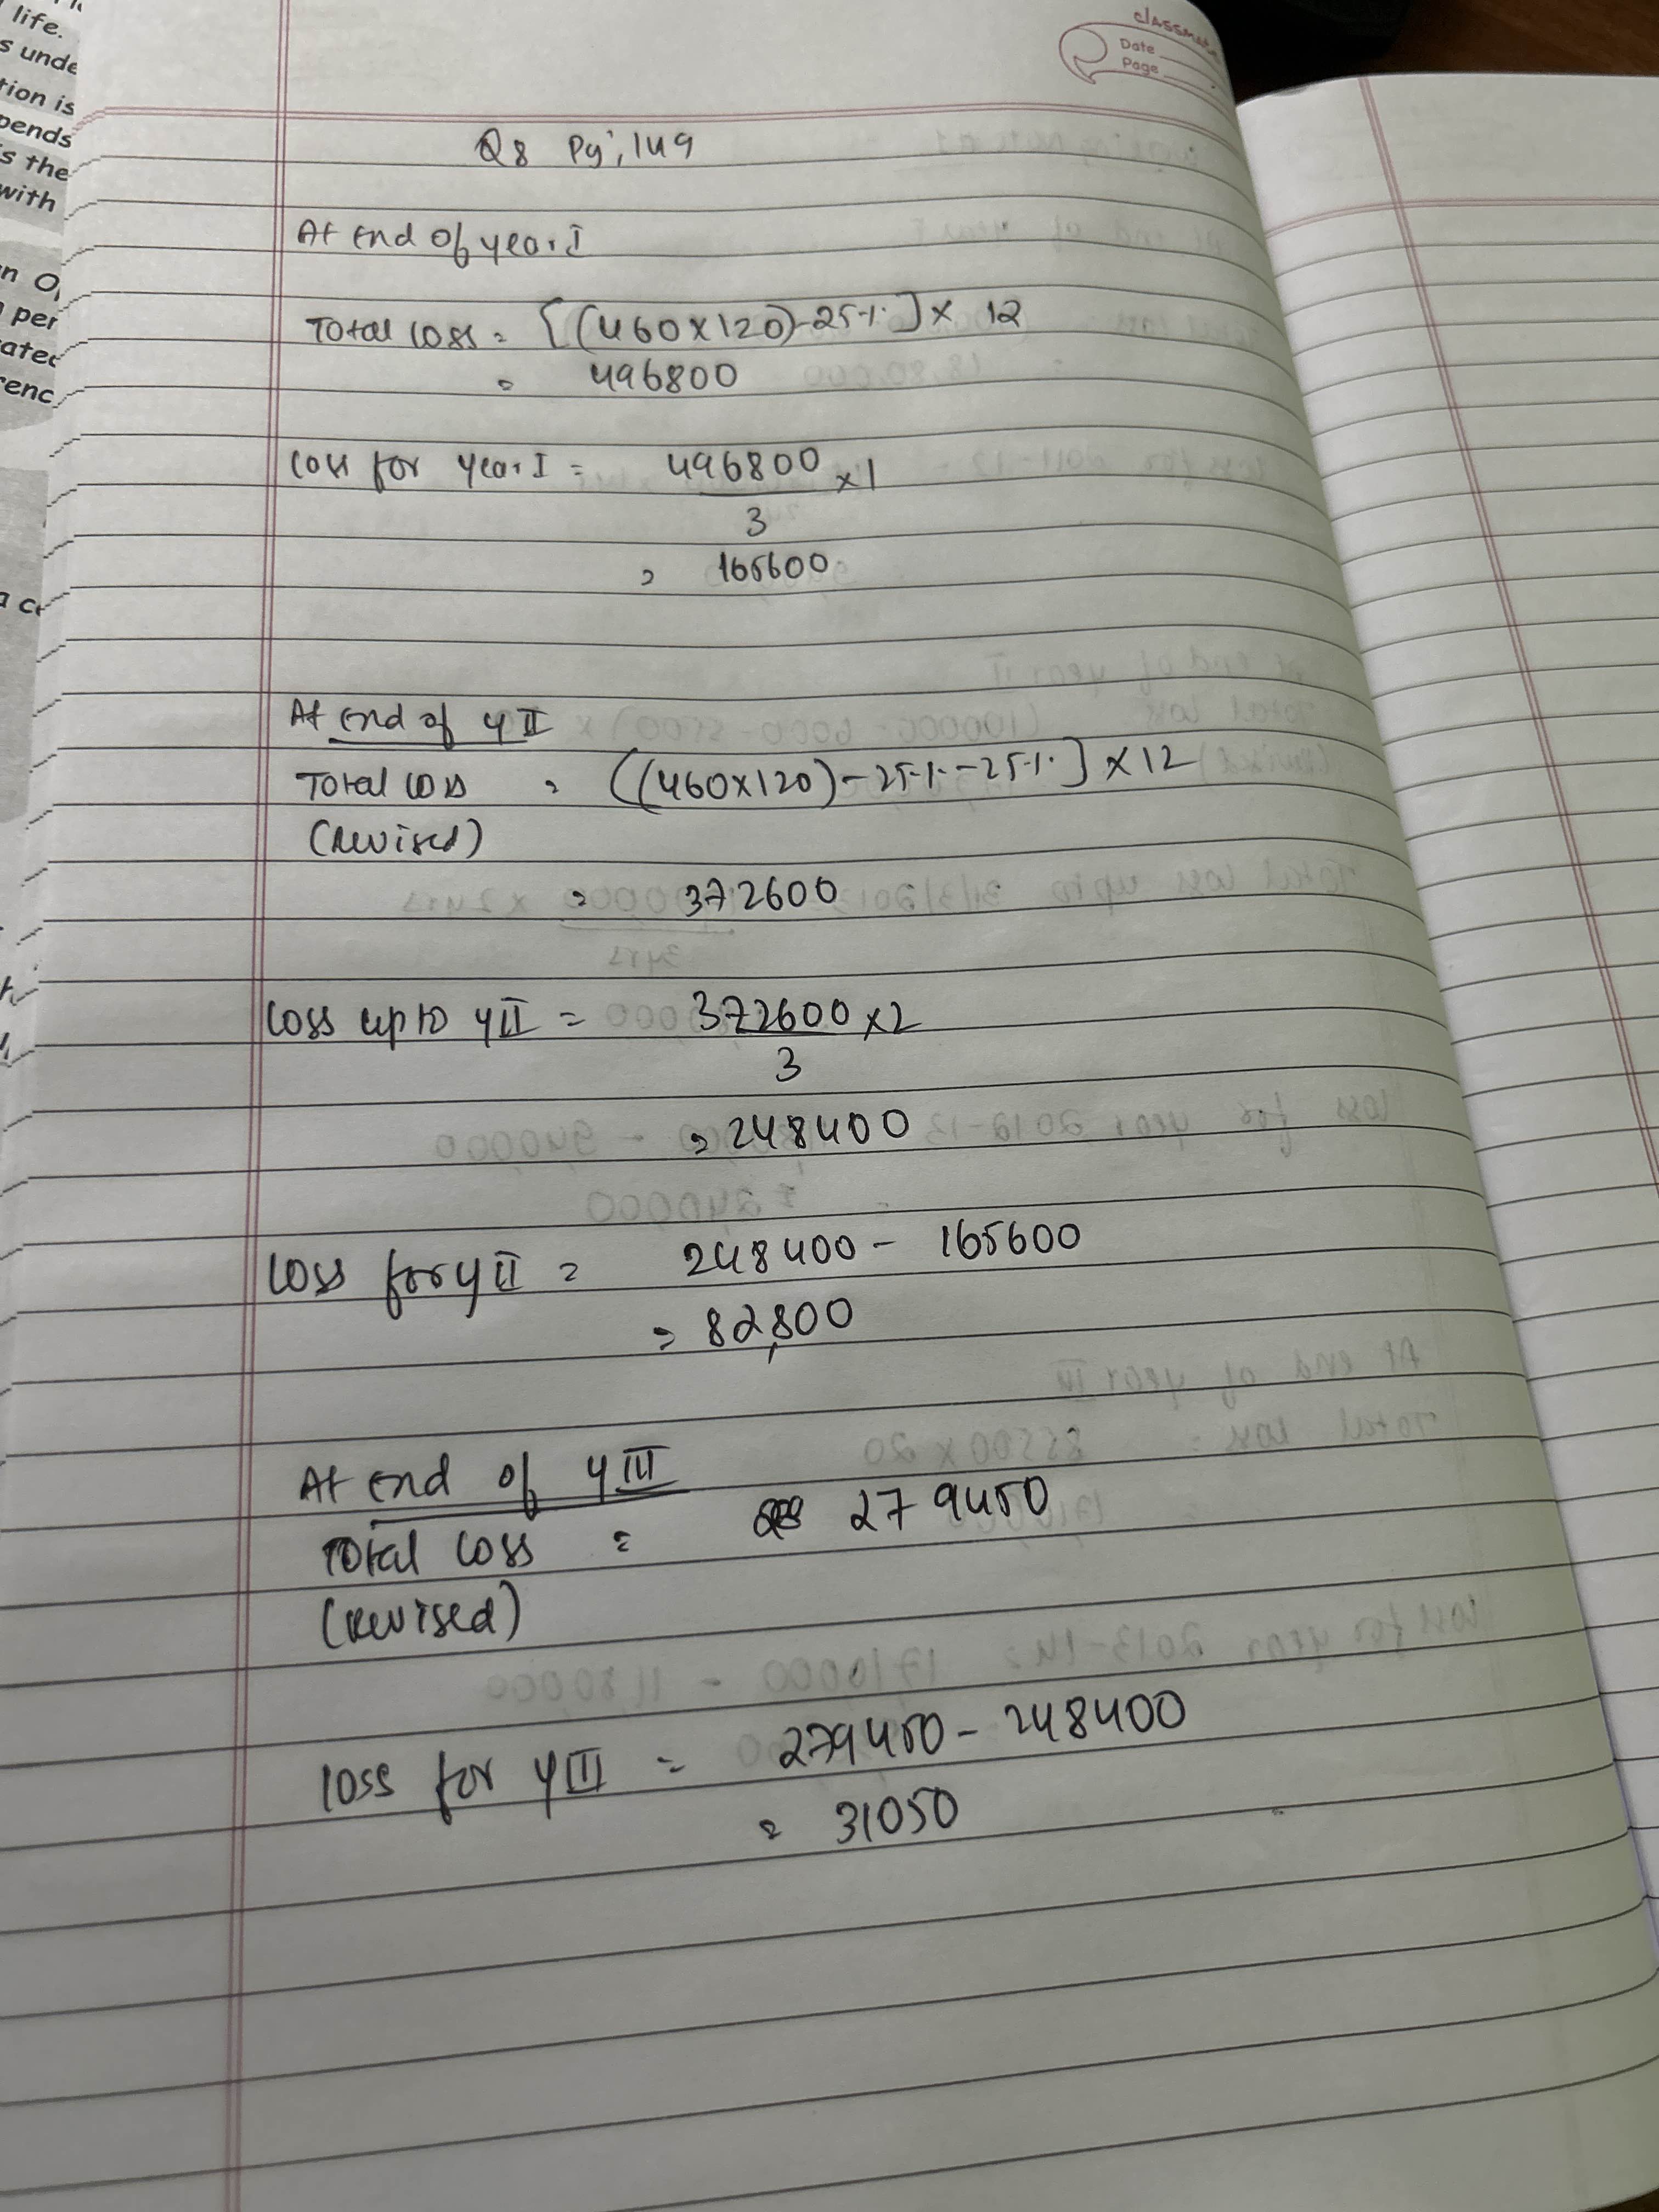 life.
s unde
tion is
pends
s the
with
n O
per
ated
renc
a co
classmate
Date
Page
Q8 Pg. 149
At end of year I
Total loss = [(460×120)-25%] × 12
= 496800
loss for year I = 496800 × 1
3
= 165600
At end of y II
Total loss = ((460×120) - 25% - 25%] × 12
(revised)
= 372600
loss upto y II = 372600 × 2
3
= 248400
loss for y II = 248400 - 165600
= 82,800
At end of y III
Total loss = 279450
(revised)
loss for y III = 279450 - 248400
= 31050